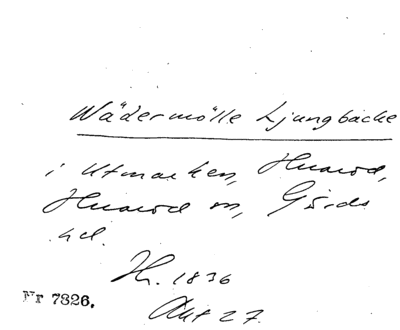 Wädermölle Ljungbacke
i Utmarken, Huarod,
Huarod sn, Gärds
hd.
Hr. 1836
Akt 27
Nr 7826.